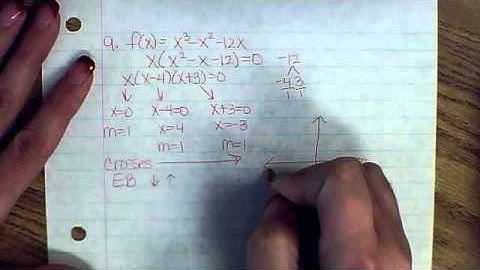 9. f(x) = x³-x²-12x
x(x²-x-12)=0 -12
x(x-4)(x+3)=0 -4 3
1 1
x=0 x-4=0 x+3=0
m=1 x=4 x=-3
m=1 m=1
crosses
EB ↓ ↑